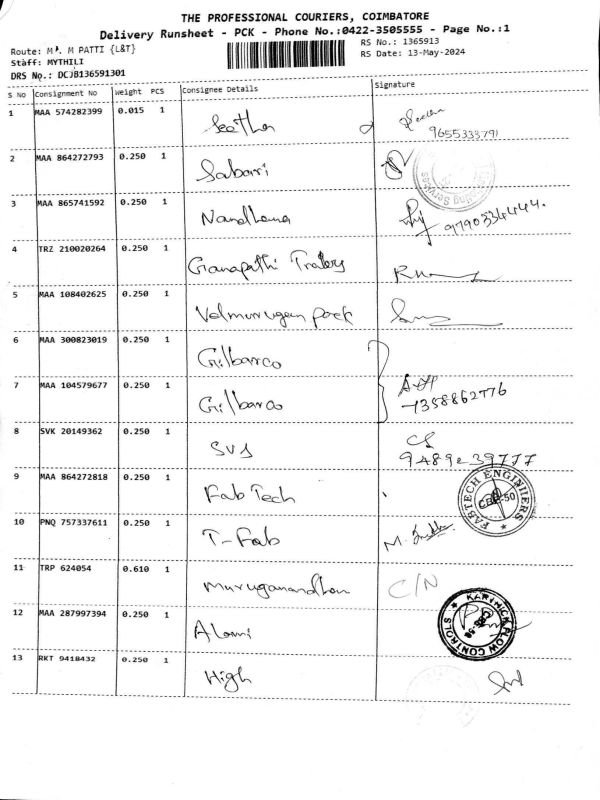 THE PROFESSIONAL COURIERS, COIMBATORE
Delivery Runsheet - PCK - Phone No.:0422-3505555 - Page No.:1
Route: M. M PATTI {L&T}
RS No.: 1365913
Staff: MYTHILI
RS Date: 13-May-2024
DRS No.: DCJB136591301
S No Consignment No Weight PCS Consignee Details Signature
1 MAA 574282399 0.015 1 Seetha
9655333791
2 MAA 864272793 0.250 1 Sabari
3 MAA 865741592 0.250 1 Nandhana 9790334444.
4 TRZ 210020264 0.250 1 Ganapathi Traders
5 MAA 108402625 0.250 1 Velmurugan pack
6 MAA 300823019 0.250 1 Gilbarco
7 MAA 104579677 0.250 1 Gilbarco 7358862776
8 SVK 20149362 0.250 1 SVS
9 MAA 864272818 0.250 1 Fab Tech FABTECH ENGINIIERS CBE-50
10 PNQ 757337611 0.250 1 T-Fab
11 TRP 624054 0.610 1 Muruganandhan C/N
12 MAA 287997394 0.250 1 Alami KARTHICK FLOW CONTROLS
13 RKT 9418432 0.250 1 High